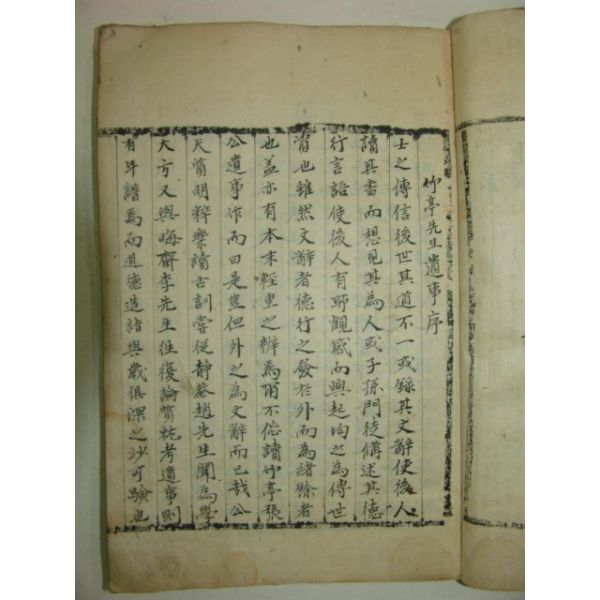 竹亭先生遺事序
士之傳信後世其道不一或錄其文辭使後人
讀其書而想見其為人或子孫門徒備述其德
行言語使後人有所觀感而興起均之為傳世
資也雖然文辭者德行之發於外而為緒餘者
也盖亦有本末輕重之辨焉爾不佞讀竹亭張
公遺事作而曰是豈但外之為文辭而已哉公
天資明粹樂讀古訓嘗從靜菴趙先生聞為學
大方又與晦齋李先生往復論質就考遺事則
有年譜焉而道德造詣與歲俱深之沙可驗也